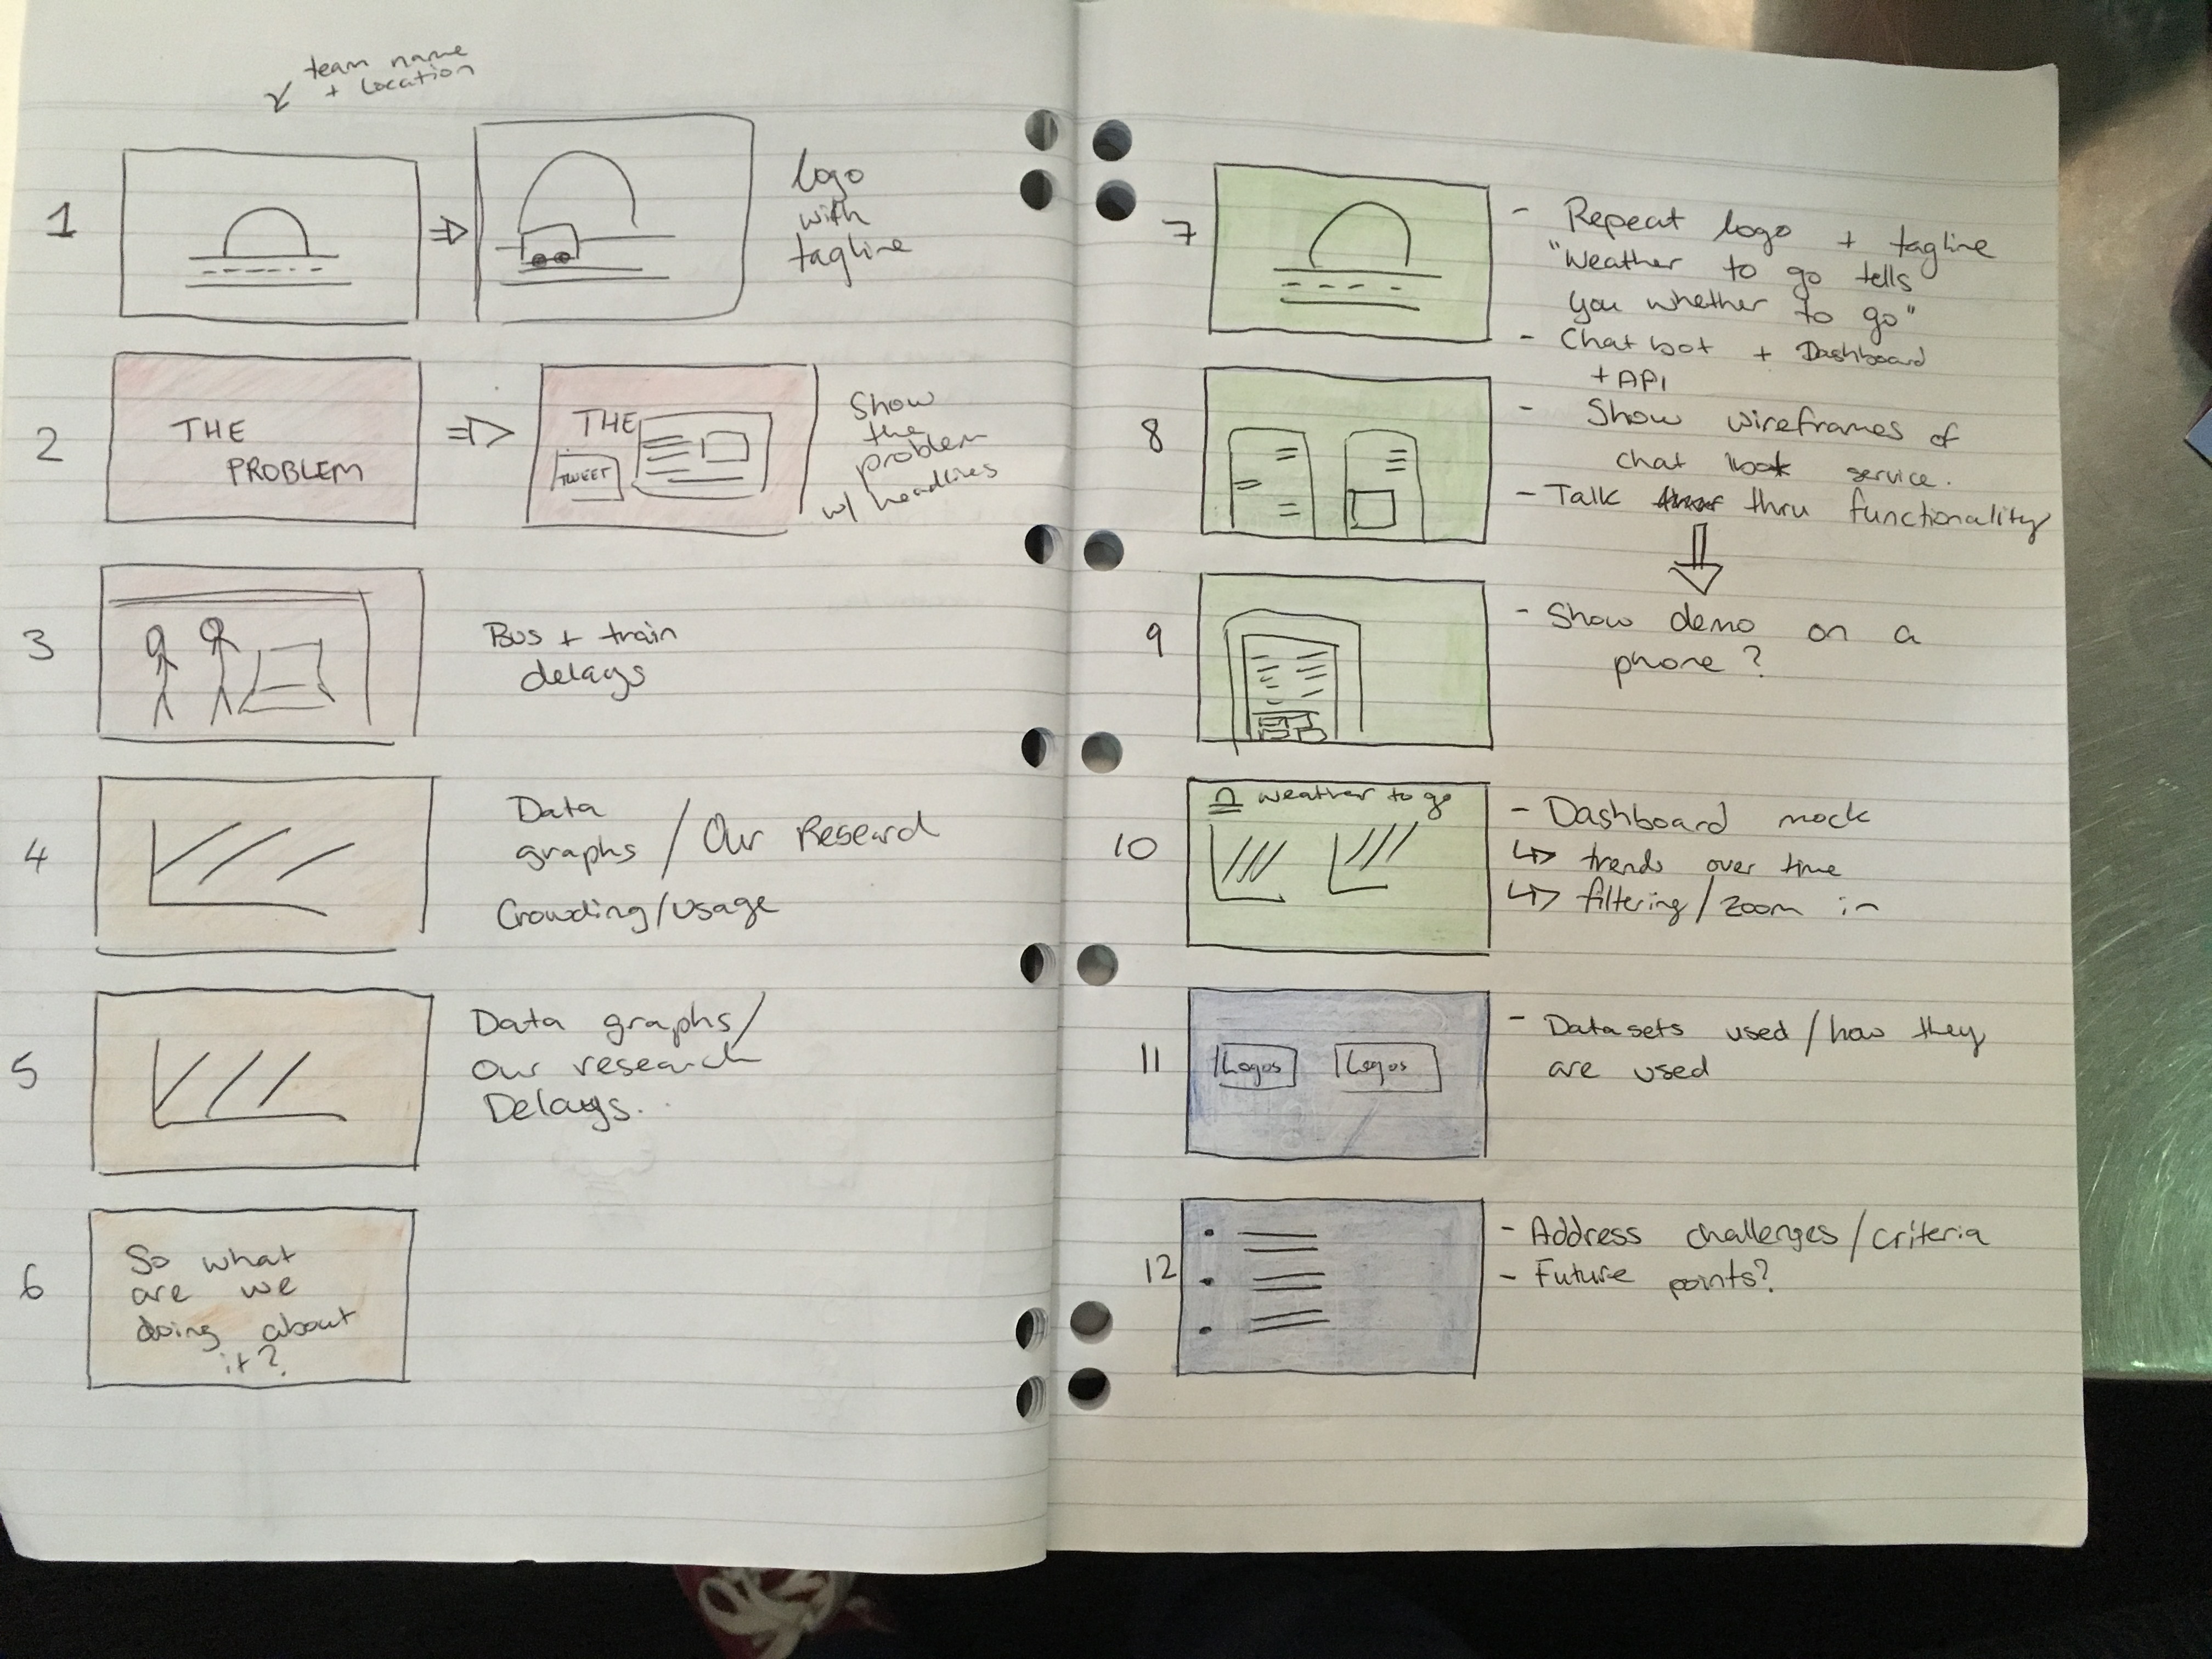 team name
+ location
1
⇒
logo
with
tagline
2
THE
PROBLEM
⇒
THE
TWEET
Show
the
problem
w/ headlines
3
Bus + train
delays
4
Data
graphs / Our Research
Crowding/usage
5
Data graphs/
our research
Delays.
6
So what
are we
doing about
it?
7
- Repeat logo + tagline
"Weather to go tells
you whether to go"
- Chat bot + Dashboard
+ API
8
- Show wireframes of
chat bot service.
- Talk thru functionality
9
- Show demo on a
phone?
10
weather to go
- Dashboard mock
↳ trends over time
↳ filtering/zoom in
11
Logos
Logos
- Datasets used/how they
are used
12
- Address challenges/criteria
- Future points?